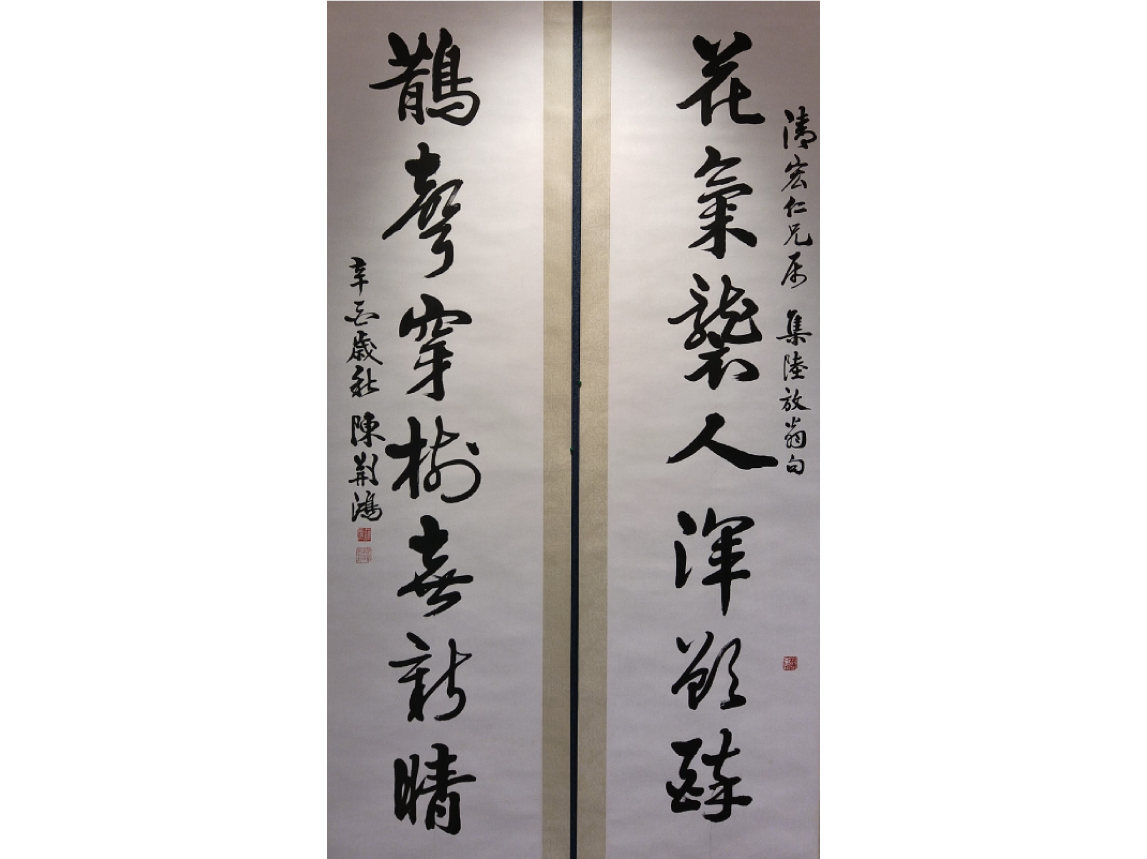 清宏仁兄属 集陸放翁句
花氣襲人渾欲醉
鵲聲穿樹喜新晴
辛酉歲秋 陳荆鴻